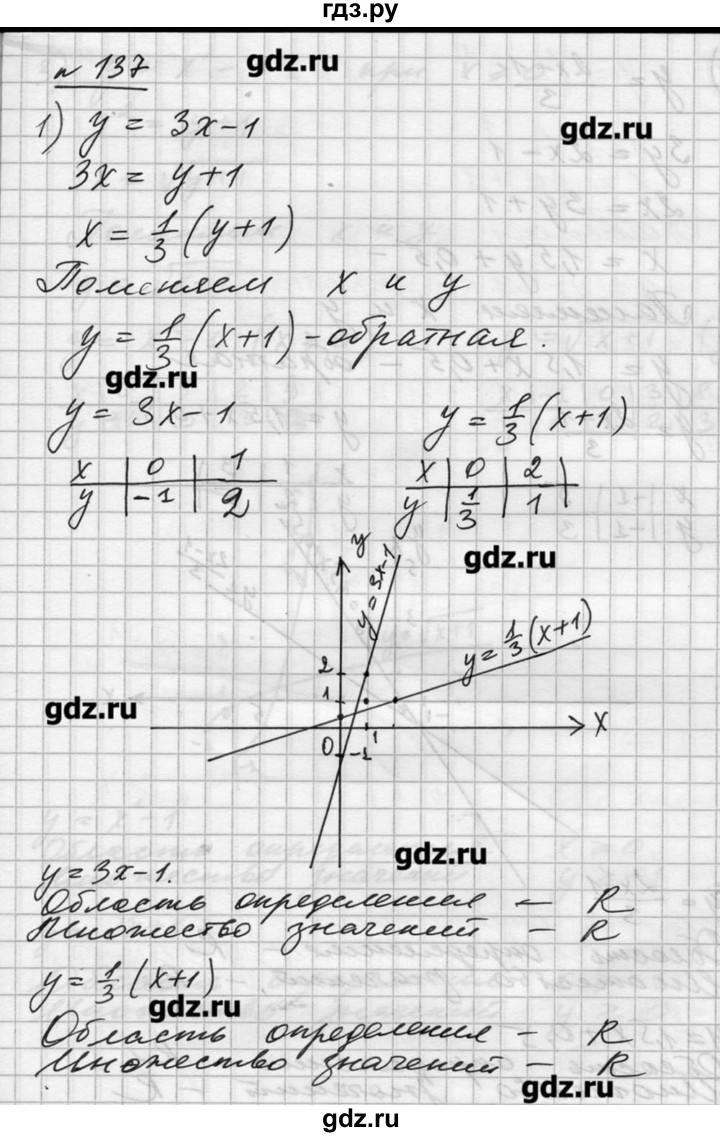 гдз.ру
№ 137
gdz.ru
1) y = 3x-1
gdz.ru
3x = y+1
x = 1/3 (y+1)
Поменяем x и y
y = 1/3 (x+1) - обратная.
gdz.ru
y = 3x-1
y = 1/3 (x+1)
x | 0 | 1
y | -1 | 2
x | 0 | 2 |
y | 1/3 | 1 |
gdz.ru
y
y=3x-1
y = 1/3 (x+1)
2
1
gdz.ru
x
0
-1
1
gdz.ru
y=3x-1.
Область определения — R
Множество значений — R
y = 1/3 (x+1)
gdz.ru
Область определения — R
Множество значений — R
gdz.ru
gdz.ru